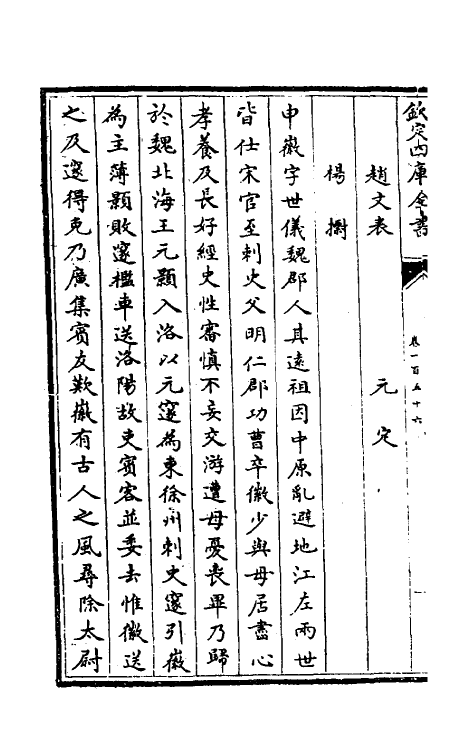 欽定四庫全書
卷一百五十六
趙文表　元定
楊㯹
申徽字世儀魏郡人其遠祖因中原亂避地江左兩世
皆仕宋官至刺史父明仁郡功曹卒徽少與母居盡心
孝養及長好經史性審慎不妄交游遭母憂喪畢乃歸
於魏北海王元顥入洛以元邃為東徐州刺史邃引徽
為主薄顥敗邃檻車送洛陽故吏賓客並委去惟徽送
之及邃得免乃廣集賓友歎徽有古人之風尋除太尉